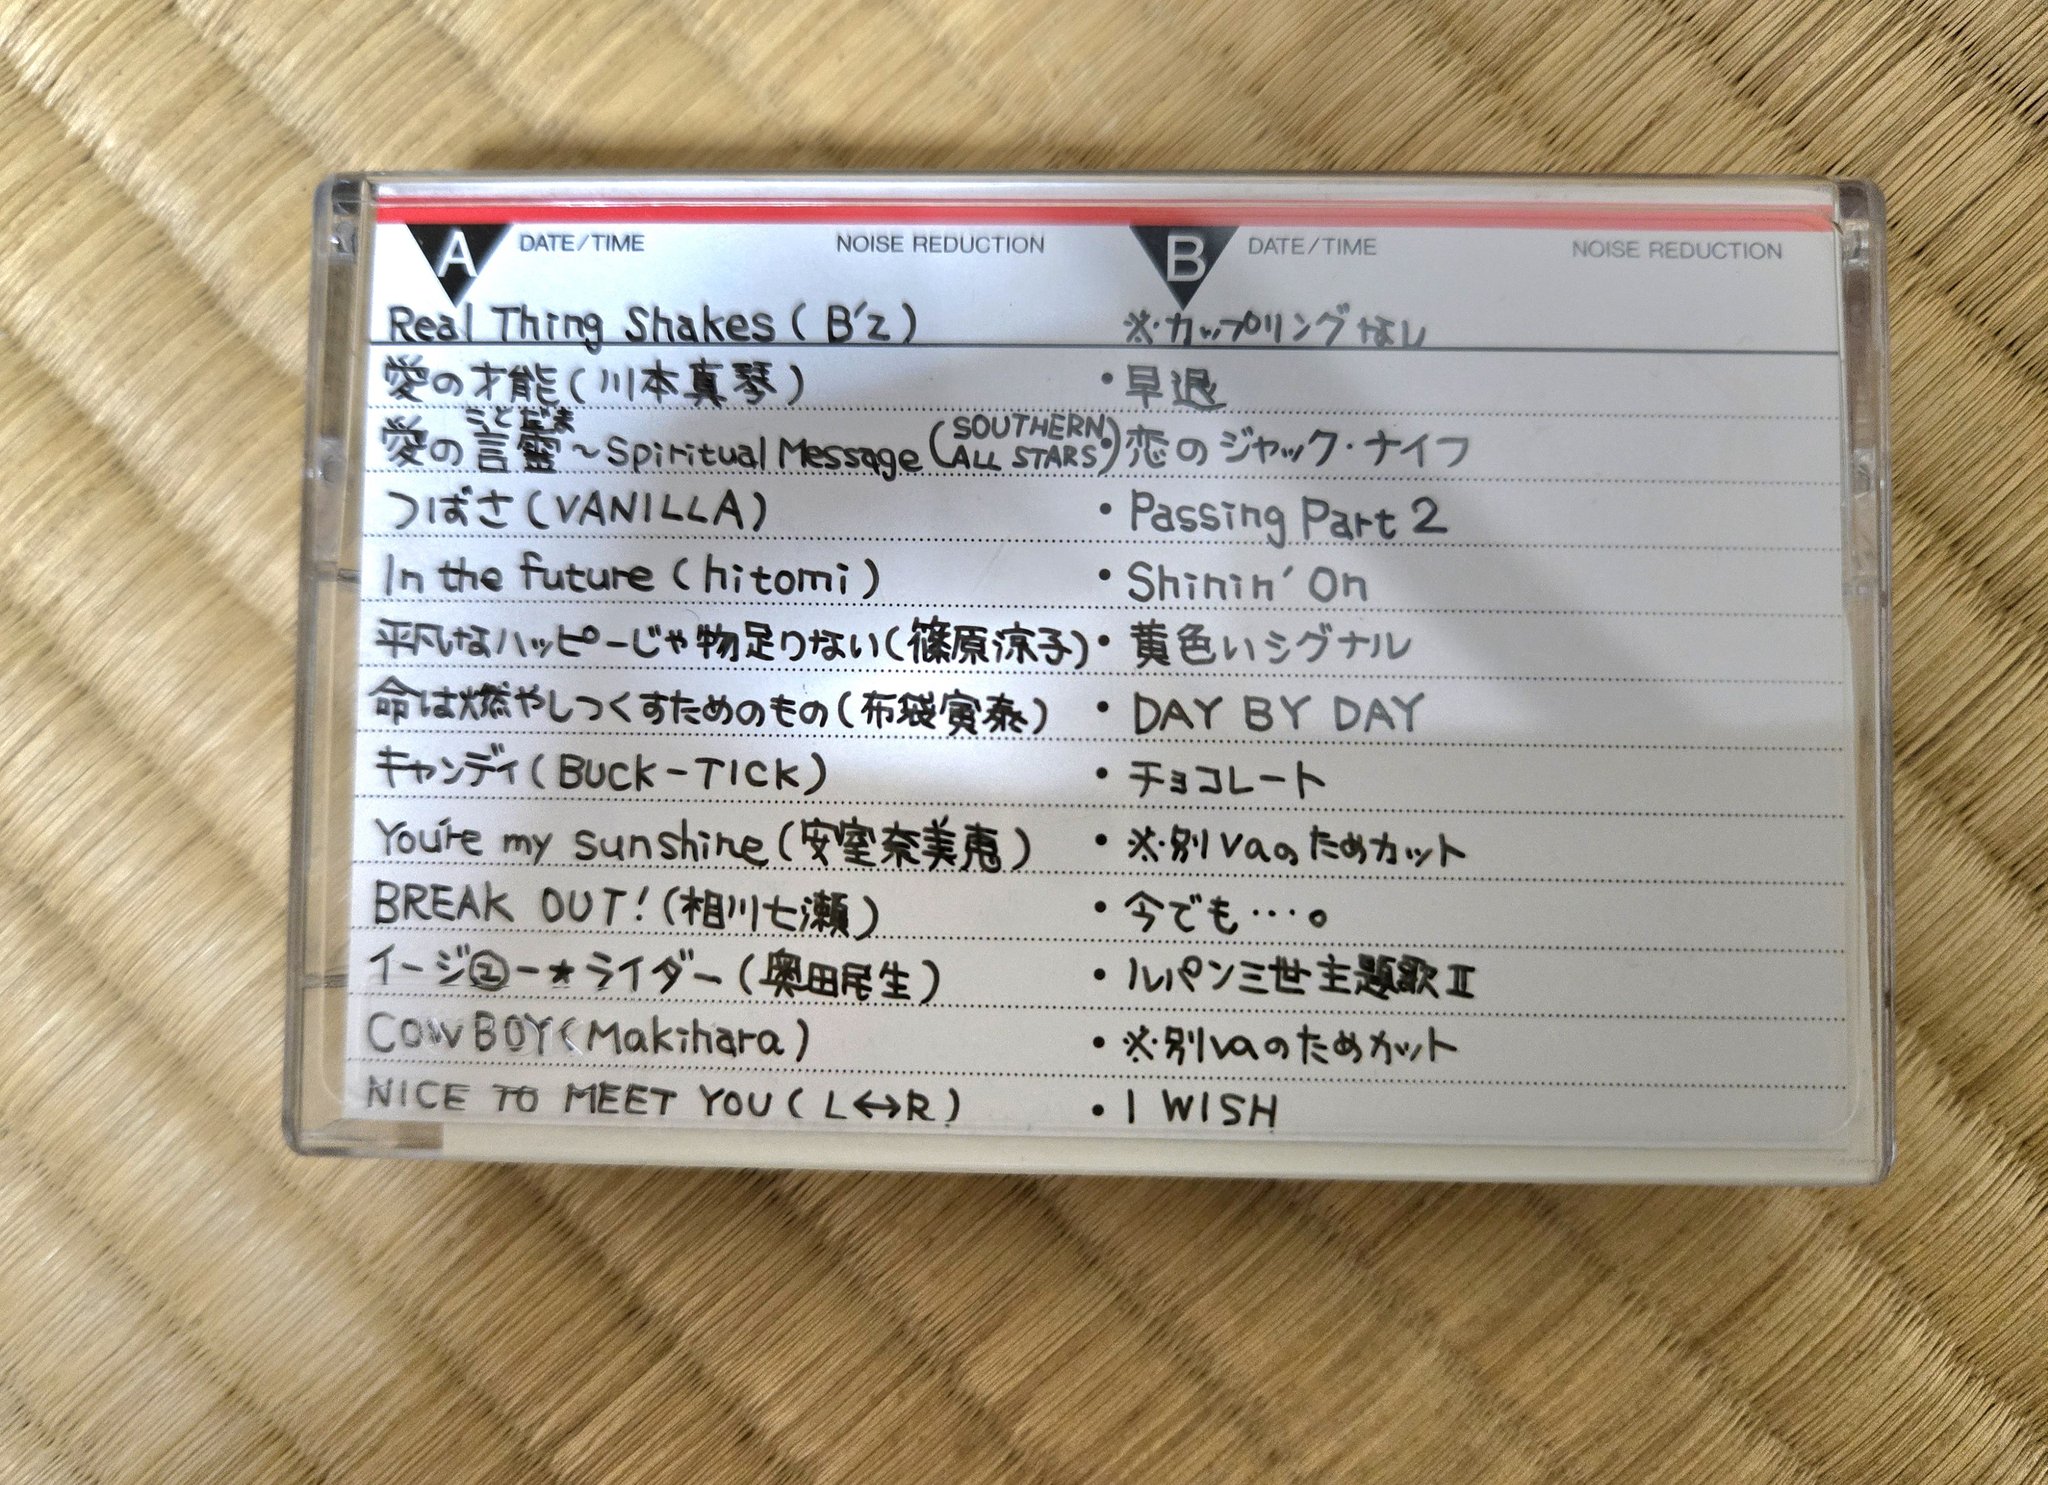 A DATE/TIME NOISE REDUCTION
Real Thing Shakes (B'z)
愛の才能(川本真琴)
ことだま
愛の言霊~Spiritual Message (SOUTHERN ALL STARS)
つばさ(VANILLA)
In the future (hitomi)
平凡なハッピーじゃ物足りない(篠原涼子)
命は燃やしつくすためのもの(布袋寅泰)
キャンディ(BUCK-TICK)
You're my sunshine (安室奈美恵)
BREAK OUT! (相川七瀬)
イージ②ー★ライダー(奥田民生)
COWBOY (Makihara)
NICE TO MEET YOU (L↔R)
B DATE/TIME NOISE REDUCTION
※カップリングなし
・早退
・恋のジャック・ナイフ
・Passing Part 2
・Shinin' On
・黄色いシグナル
・DAY BY DAY
・チョコレート
・※別vaのためカット
・今でも…。
・ルパン三世主題歌Ⅱ
・※別vaのためカット
・I WISH